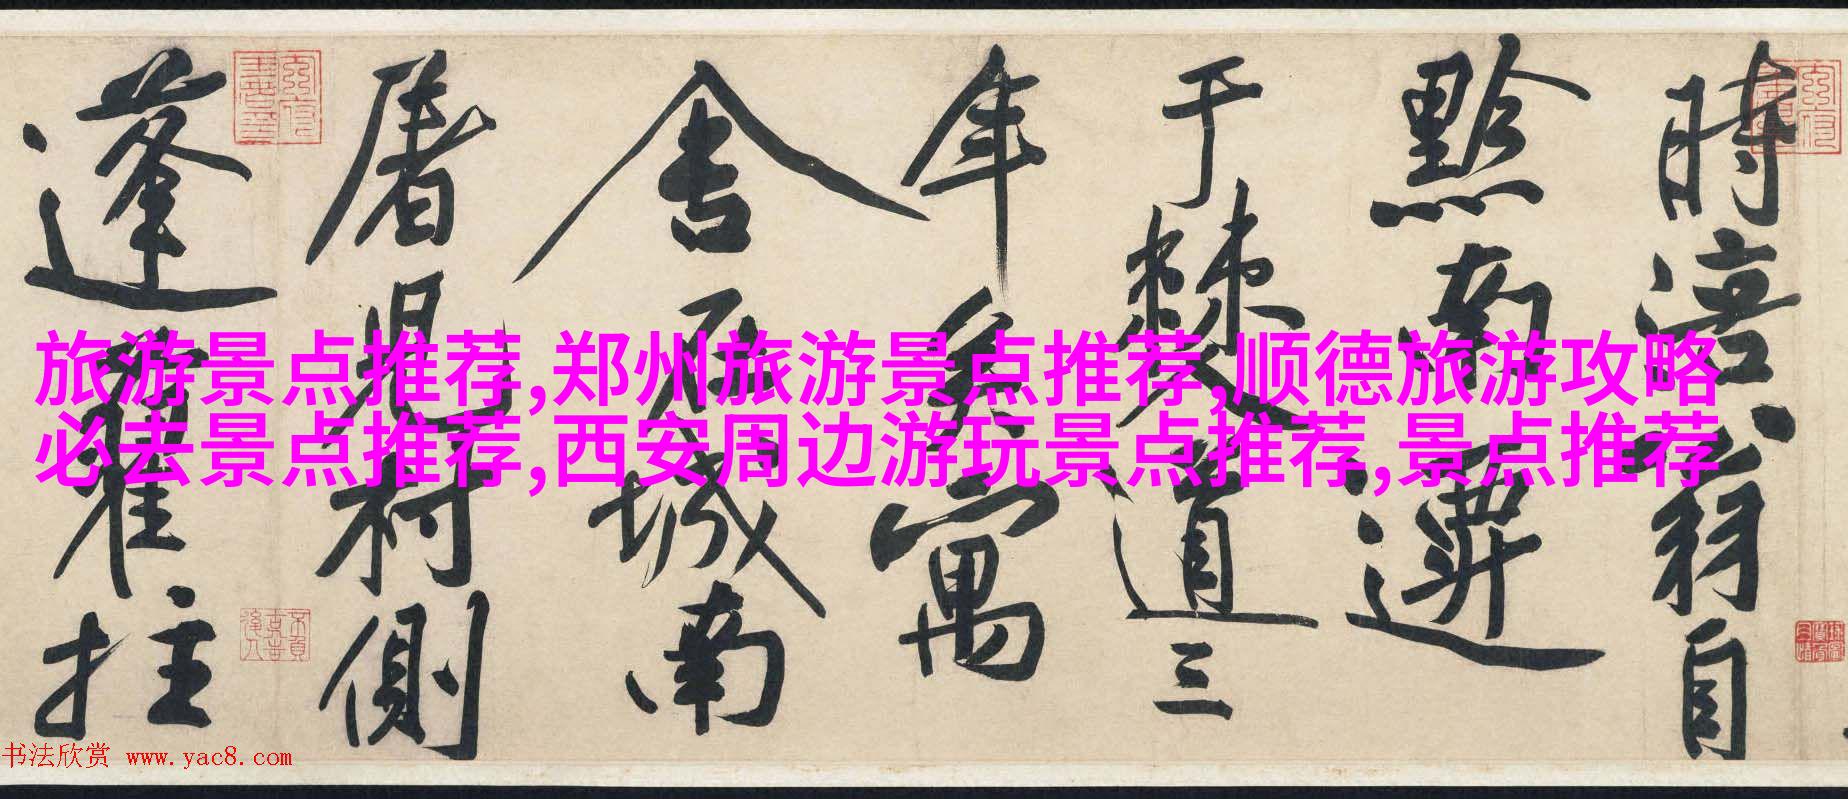 時涪翁自
黔南遷
于僰道三
年矣寓
舍在城南
屠兒村側
蓬藋拄
旅游景点推荐,郑州旅游景点推荐,顺德旅游攻略
必去景点推荐,西安周边游玩景点推荐,景点推荐
书法欣赏 www.yac8.com